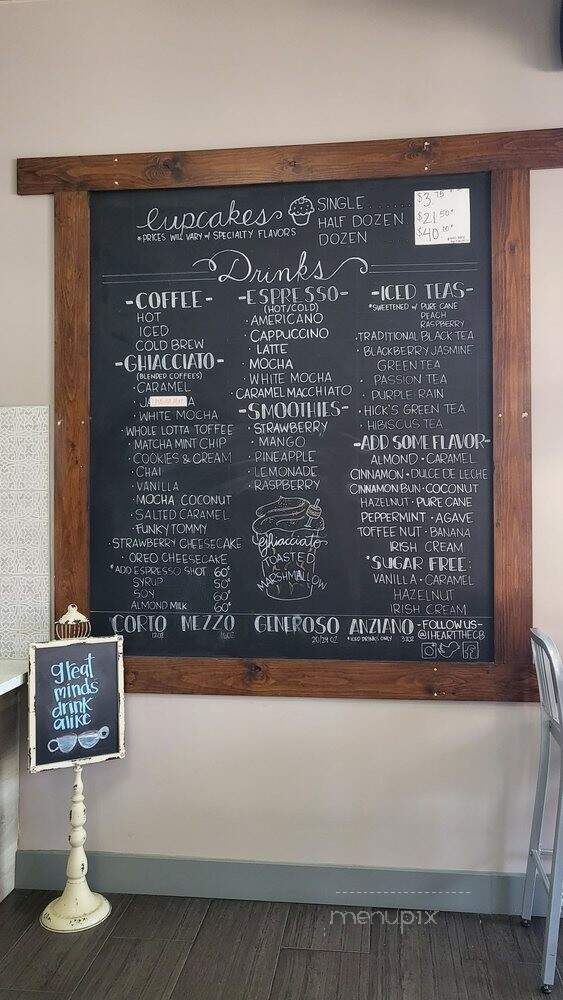 Cupcakes
*PRICES WILL VARY W/ SPECIALTY FLAVORS
SINGLE.......... $3.75*
HALF DOZEN $21.50*
DOZEN $40.00*
Drinks
-COFFEE-
HOT
ICED
COLD BREW
-GHIACCIATO-
(BLENDED COFFEES)
·CARAMEL
·WHITE MOCHA
·WHOLE LOTTA TOFFEE
·MATCHA MINT CHIP
·COOKIES & CREAM
·CHAI
·VANILLA
·MOCHA COCONUT
·SALTED CARAMEL
·FUNKY TOMMY
·STRAWBERRY CHEESECAKE
·OREO CHEESECAKE
*ADD ESPRESSO SHOT 60¢
SYRUP 50¢
SOY 60¢
ALMOND MILK 60¢
-ESPRESSO-
(HOT/COLD)
·AMERICANO
·CAPPUCCINO
·LATTE
·MOCHA
·WHITE MOCHA
CARAMEL MACCHIATO
-SMOOTHIES-
·STRAWBERRY
·MANGO
·PINEAPPLE
·LEMONADE
·RASPBERRY
Ghiacciato
TOASTED
MARSHMALLOW
-ICED TEAS-
*SWEETENED W/ PURE CANE
PEACH
RASPBERRY
·TRADITIONAL BLACK TEA
·BLACKBERRY JASMINE
GREEN TEA
·PASSION TEA
·PURPLE RAIN
·HICK'S GREEN TEA
·HIBISCUS TEA
-ADD SOME FLAVOR-
ALMOND·CARAMEL
CINNAMON·DULCE DE LECHE
CINNAMON BUN·COCONUT
HAZELNUT·PURE CANE
PEPPERMINT·AGAVE
TOFFEE NUT·BANANA
IRISH CREAM
*SUGAR FREE:
VANILLA·CARAMEL
HAZELNUT
IRISH CREAM
CORTO MEZZO GENEROSO ANZIANO
12OZ 16OZ 20/24 OZ *ICED DRINKS ONLY 32OZ
-FOLLOW US-
@IHEARTTHECB
great
minds
drink
alike
menupix